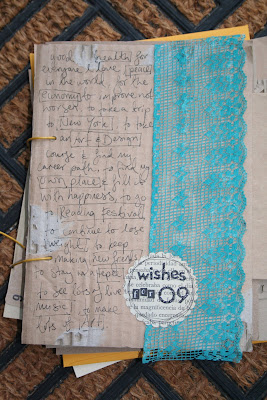 good health for
everyone I love peace
in the world to the
economy to improve not
worsen to take a trip
to New York to take
an Art & Design
course & find my
career path, to find my
own place & fill it
with happiness, to go
to Reading festival
to continue to lose
weight, to keep
making new friends
to see lots of live
music to make
lots of ART.
wishes
for 09
la magnificencia de